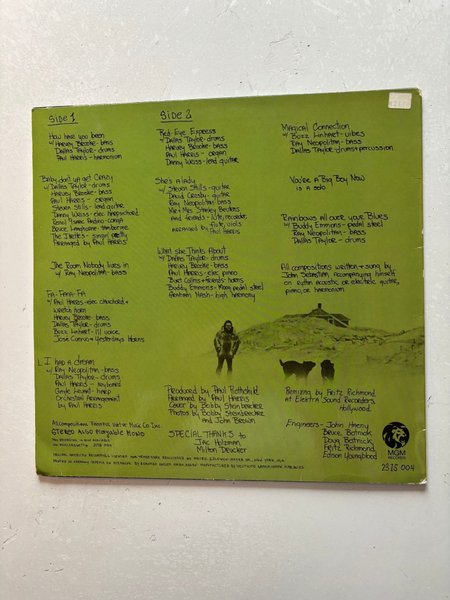 Side 1
How have you been
w/ Harvey Brooks - bass
Dallas Taylor - drums
Paul Harris - harmonium
Baby, don't ya get CRAZY
w/ Dallas Taylor - drums
Harvey Brooks - bass
Paul Harris - organ
Stephen Stills - lead guitar
Danny Weiss - elec harpsichord
Bruce Langhorne - tambourine
The Ikettes - singin' prettily
Arranged by Paul Harris
The Room Nobody lives in
w/ Ray Neopolitan - bass
FA-FANA-FA
w/ Paul Harris -
Harvey Brooks - bass
Dallas Taylor - drums
Buzz Linhart -
I had a dream
w/ Ray Neopolitan - bass
Dallas Taylor - drums
Paul Harris - keyboard
Gayle Levant - harp
Orchestral Arrangement
by Paul Harris
STEREO ALSO PLAYABLE MONO
Side 2
Red-Eye Express
w/ Dallas Taylor - drums
Harvey Brooks - bass
Paul Harris - organ
Danny Weiss - lead guitar
She's a lady
w/ Stephen Stills - guitar
David Crosby - guitar
Ray Neopolitan - bass
What she thinks About
w/ Dallas Taylor - drums
Harvey Brooks - bass
Paul Harris - elec piano
Burt Collins + friends - horns
Buddy Emmons - Moog pedal steel
Graham Nash - high harmony
Magical Connection
w/ Buzz Linhart - vibes
Ray Neopolitan - bass
Dallas Taylor - drums + percussion
You're A Big Boy Now
is a solo
Rainbows all over your Blues
w/ Buddy Emmons - pedal steel
Ray Neopolitan - bass
Dallas Taylor - drums
All compositions written + sung by
John Sebastian, accompanying himself
on either acoustic or electric guitar,
piano, or harmonium
Produced by Paul Rothchild
Arranged by Paul Harris
Cover by Bobby Steinbrecher
Photos by Bobby Steinbrecher
and John Brown
SPECIAL THANKS to
Jac Holzman
Milton Deucker
Remixing by Fritz Richmond
at Elektra Sound Recorders,
Hollywood
Engineers - John Haeny
Bruce Botnick
Doug Botnick
Fritz Richmond
Edison Youngblood
MGM
RECORDS
2315 004